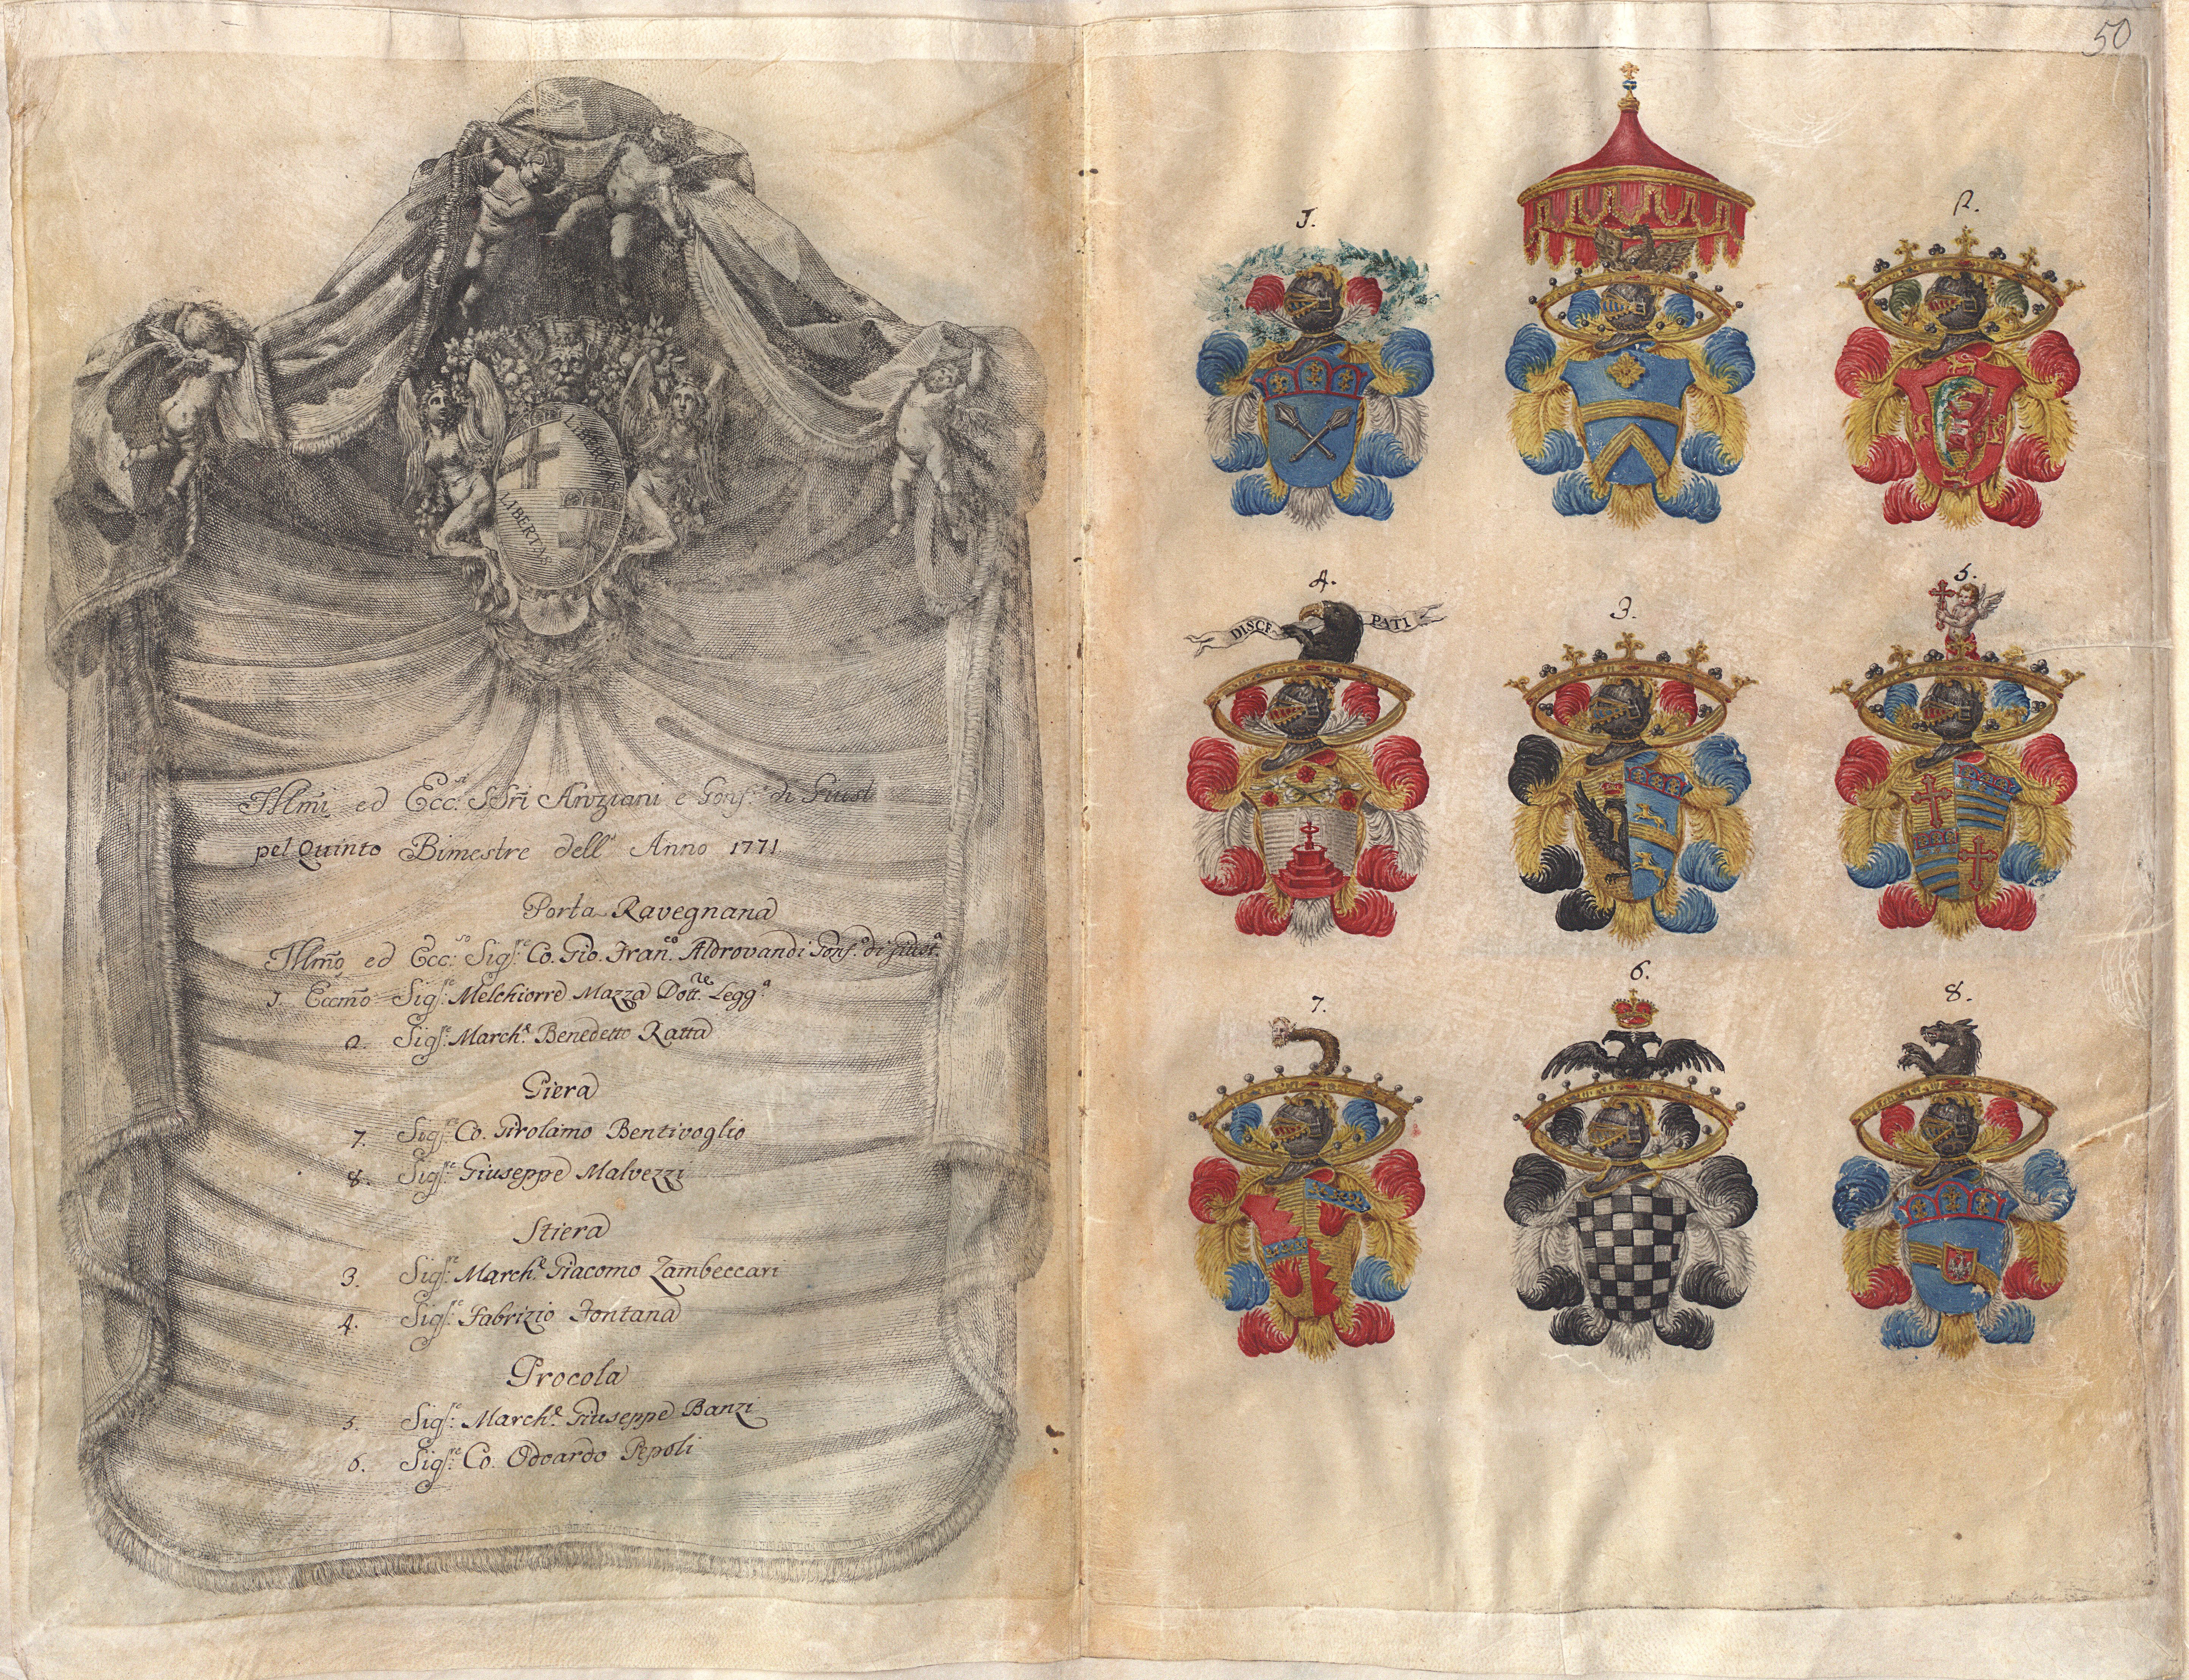 LIBERTAS
LIBERTAS
Illmi ed Ecc.si SSri Anziani e Gonf.re di Giust.
pel Quinto Bimestre dell' Anno 1771
Porta Ravegnana
Illmo ed Ecc.so Sig.re Co. Gio. Fran.co Aldrovandi Gonf.e di Giust.a
1. Eccmo Sig.re Melchiorre Mazza Dott.re Legg.a
2. Sig.re March.e Benedetto Ratta
Piera
7. Sig.re Co. Girolamo Bentivoglio
8. Sig.re Giuseppe Malvezzi
Stiera
3. Sig.re March.e Giacomo Zambeccari
4. Sig.re Fabrizio Fontana
Procola
5. Sig.re March.e Giuseppe Banzi
6. Sig.re Co. Odoardo Pepoli
50
1.
2.
4.
DISCE PATI
3.
5.
7.
6.
8.